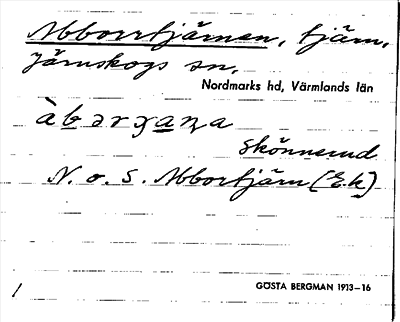 Abborrtjärnen, tjärn,
Järnskogs sn,
Nordmarks hd, Värmlands län
skönnerud
N. o. S. Abbortjärn (E.k)
GÖSTA BERGMAN 1913–16
1